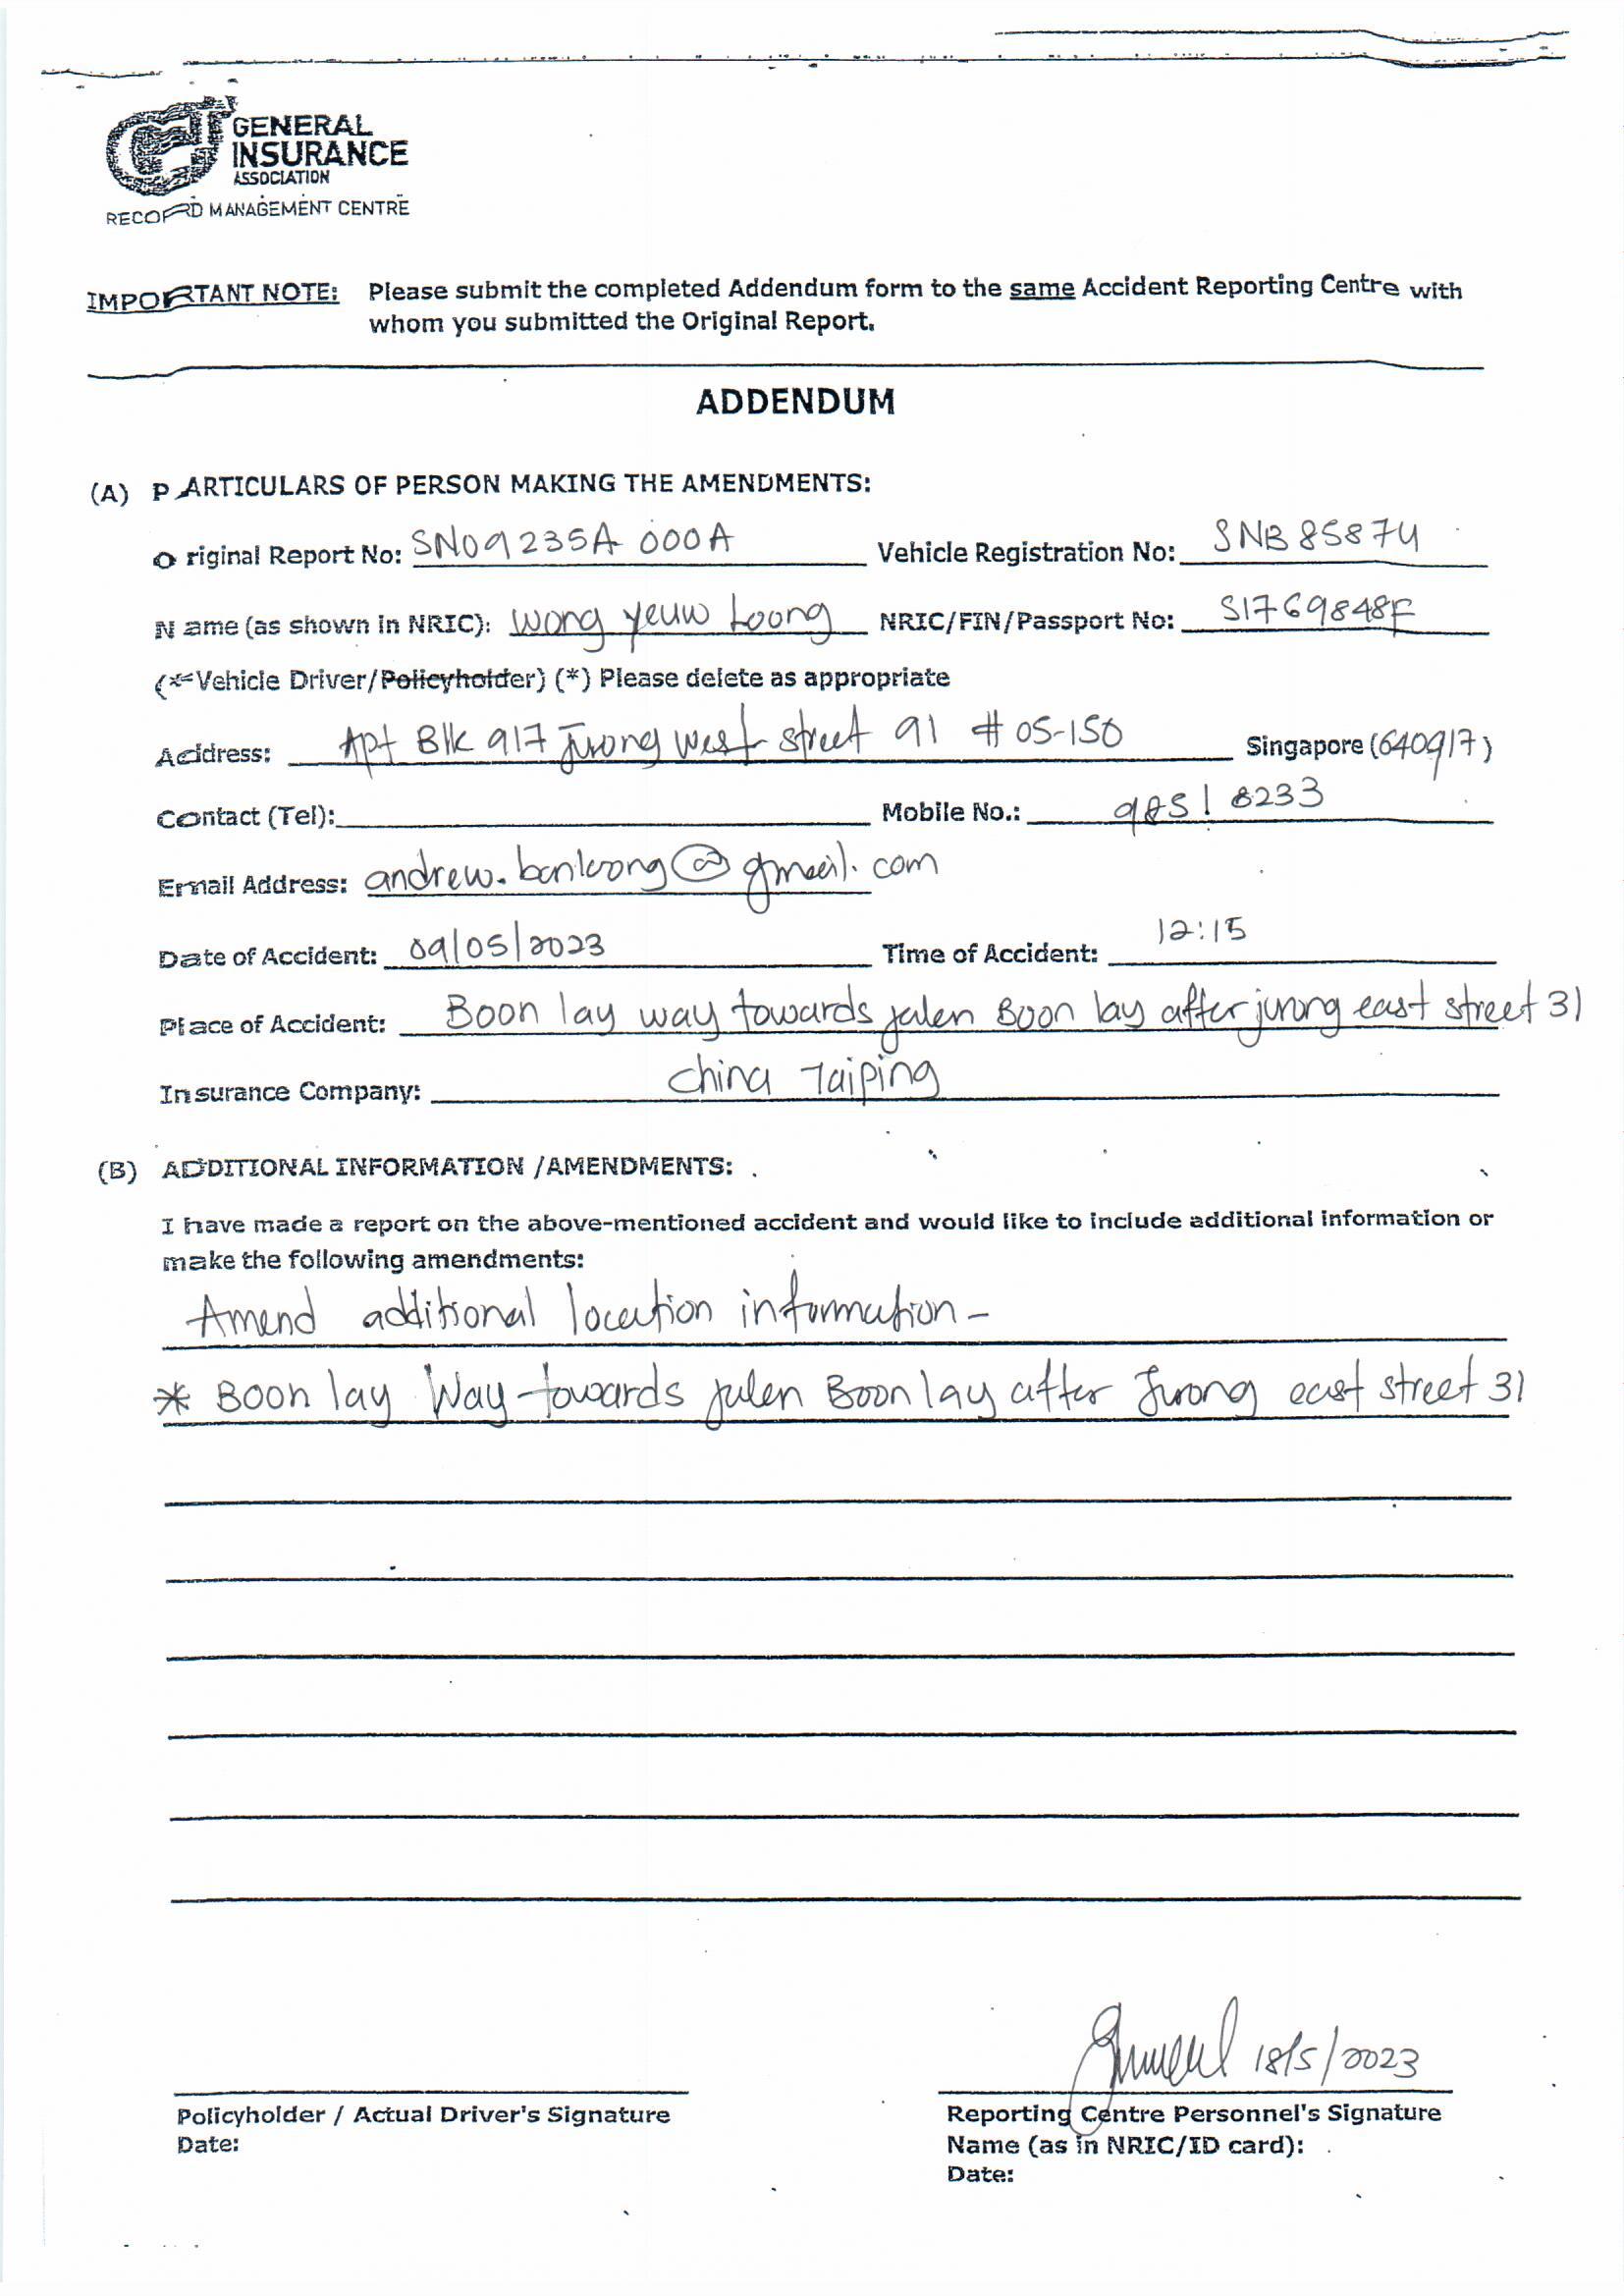 GENERAL
INSURANCE
ASSOCIATION
RECORD MANAGEMENT CENTRE
IMPORTANT NOTE: Please submit the completed Addendum form to the same Accident Reporting Centre with
whom you submitted the Original Report.
ADDENDUM
(A) PARTICULARS OF PERSON MAKING THE AMENDMENTS:
Original Report No: SN09235A 000A Vehicle Registration No: SNB 8587U
Name (as shown in NRIC): Wong Yeuw Loong NRIC/FIN/Passport No: S1769848F
(*Vehicle Driver/Policyholder) (*) Please delete as appropriate
Address: Apt Blk 917 Jurong west street 91 # 05-150 Singapore (640917)
Contact (Tel): Mobile No.: 9851 8233
Email Address: @gmail.com
Date of Accident: 09/05/2023 Time of Accident: 12:15
Place of Accident: Boon lay way towards jalen Boon lay after jurong east street 31
Insurance Company: China Taiping
(B) ADDITIONAL INFORMATION /AMENDMENTS:
I have made a report on the above-mentioned accident and would like to include additional information or
make the following amendments:
Amend additional location information -
* Boon lay Way towards jalen Boon lay after Jurong east street 31
18/5/2023
Policyholder / Actual Driver's Signature Reporting Centre Personnel's Signature
Date: Name (as in NRIC/ID card):
Date: